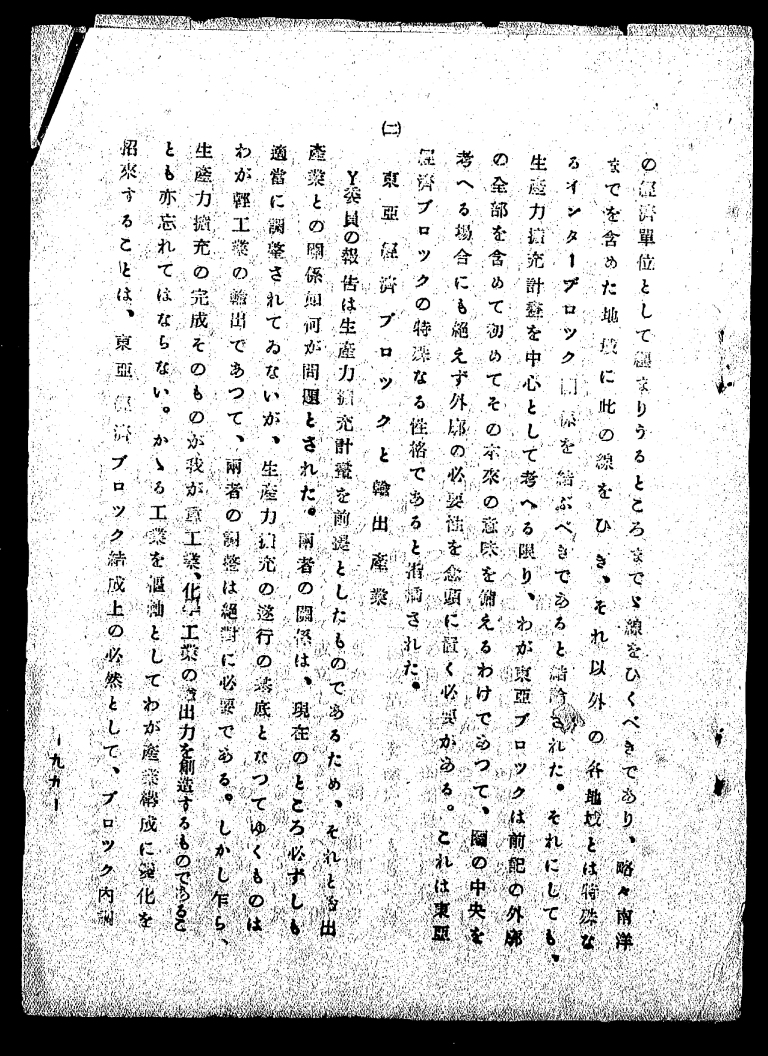 の經濟單位として纒まりうるところまでゝ線をひくべきであり、略々南洋
までを含めた地域に此の線をひき、それ以外の各地域とは特殊な
るインターブロック關係を結ぶべきであると結論された。それにしても、
生產力擴充計畫を中心として考へる限り、わが東亞ブロックは前記の外廓
の全部を含めて初めてその本來の意味を備えるわけであつて、圈の中央を
考へる場合にも絕えず外廓の必要性を念頭に置く必要がある。これは東亞
經濟ブロックの特殊なる性格であると指摘された。
㈡ 東亞經濟ブロックと輸出產業
Y委員の報告は生產力擴充計畫を前提としたものであるため、それと輸出
產業との關係如何が問題とされた。兩者の關係は、現在のところ必ずしも
適當に調整されてゐないが、生產力擴充の遂行の基底となつてゆくものは
わが輕工業の輸出であつて、兩者の調整は絕對に必要である。しかし乍ら、
生產力擴充の完成そのものが我が重工業、化學工業の輸出力を創造するものであるこ
とも亦忘れてはならない。かゝる工業を樞軸としてわが產業構成に變化を
招來することは、東亞經濟ブロック結成上の必然として、ブロック內調
一九九一